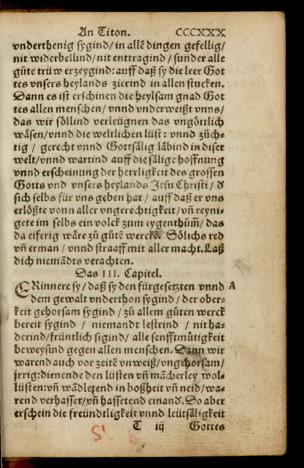 An Titon. CCCXXX
vnderthenig sygind/ in allē dingen gefellig/
nit widerbellind/nit enttragind / sunder alle
güte trüw erzeygind: auff daß sy die leer Got
tes vnsers heylands zierind in allen stucken.
Dann es ist erschinen die heylsam gnad Got
tes allen menschen/ vnnd vnderweißt vnns/
das wir söllind verleügnen das vngöttlich
wäsen/vnnd die weltlichen lüst : vnnd züch-
tig / gerecht vnnd Gottsälig läbind in diser
welt/vnnd wartind auff die sälige hoffnung
vnnd erscheinung der herrligkeit des grossen
Gotts vnd vnsers heylands Jesu Christi/ d
sich selbs für vns geben hat / auff daß er vns
erlößte vonn aller vngerechtigkeit/ vñ reyni-
gete im selbs ein volck zum eygenthūm/ das
da eiferig wäre zů gůtē werckē. Sölichs red
vñ erman / vnnd straaff mit aller macht. Laß
dich niemādts verachten.
Das III. Capitel.
ERinnere sy/ daß sy den fürgesetzten vnnd A
dem gewalt vnderthon sygind / der ober-
keit gehorsam sygind/ zů allem gůten werck
bereit sygind / niemandt lestrind / nit ha-
derind/früntlich sigind/ alle senfftmütigkeit
beweysind gegen allen menschen. Dann wir
warend auch vor zeitē vnweiß/vngehorsam/
jrrig: dienende den lüsten vñ mācherley wol-
lüsten: vñ wādlepend in boßheit vñ neid/wa-
rend verhasset/vñ hassetend einand. Do aber
erschein die freüntdligkeit vnnd leütsäligkeit
T iij Gottes